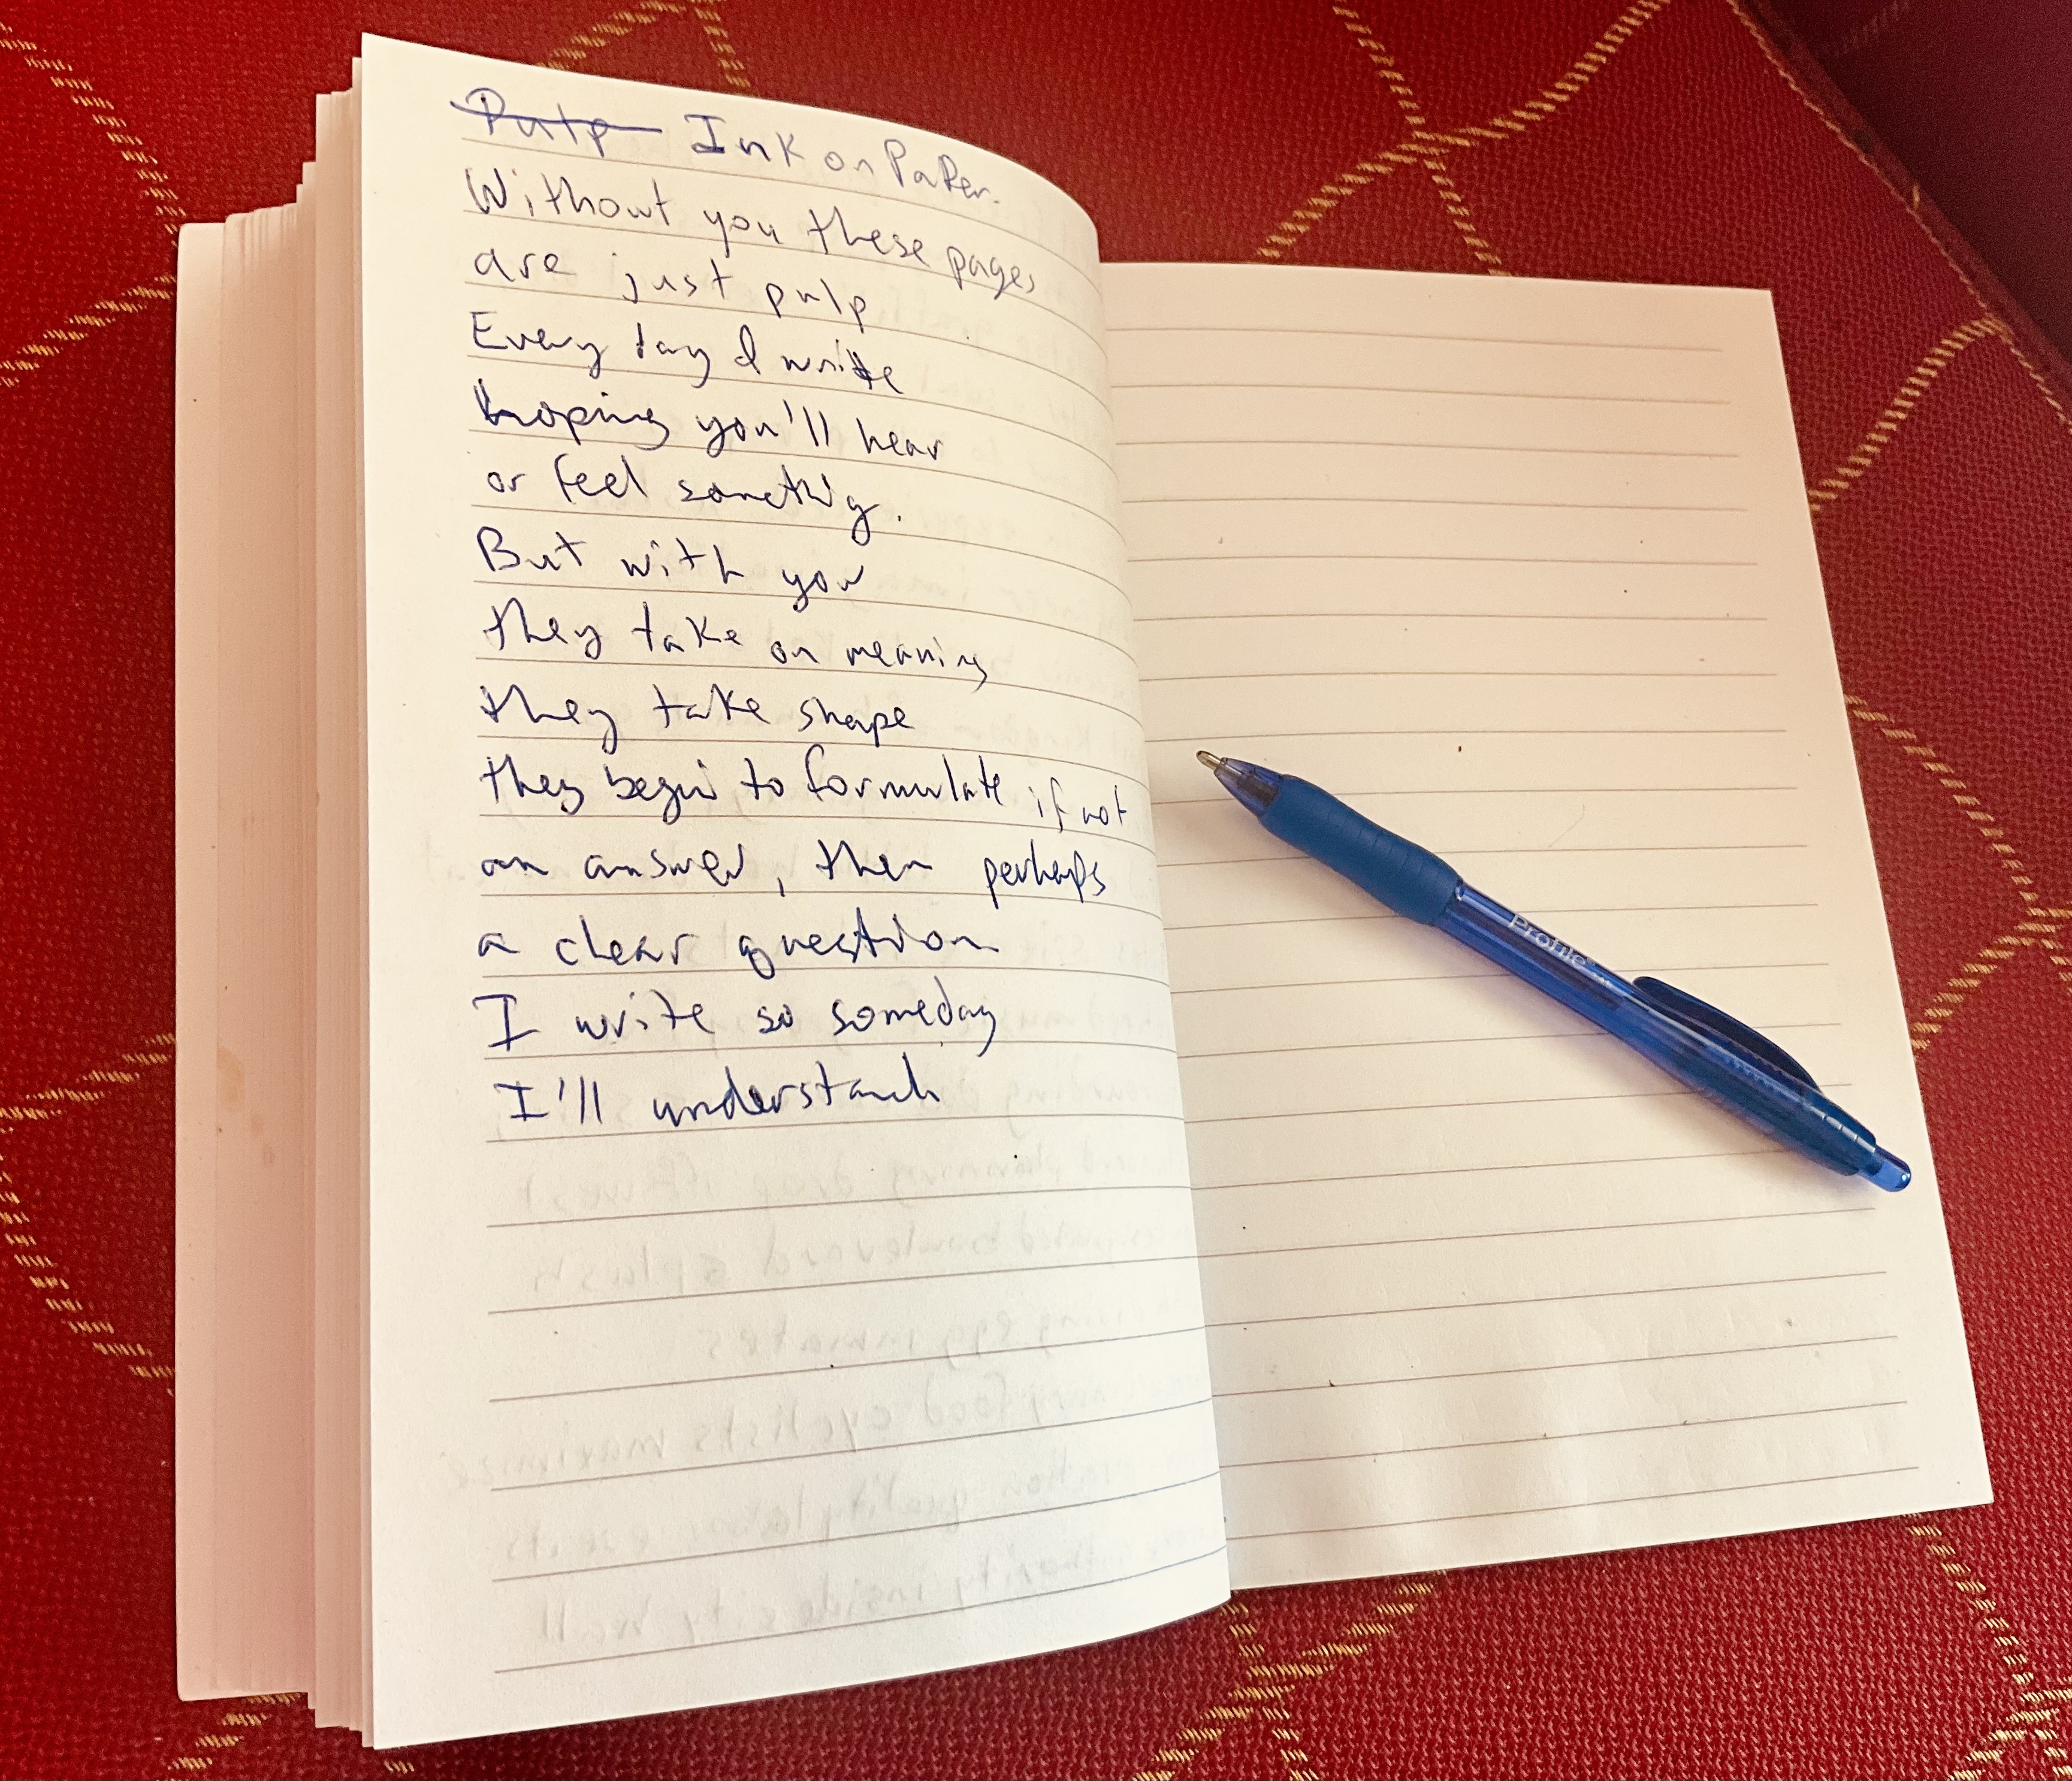 Pulp Ink on Paper.
Without you these pages
are just pulp
Every day I write
hoping you'll hear
or feel somethig.
But with you
they take on meaning
they take shape
they begin to formulate if not
an answer, then perhaps
a clear question
I write so someday
I'll understand
Profile